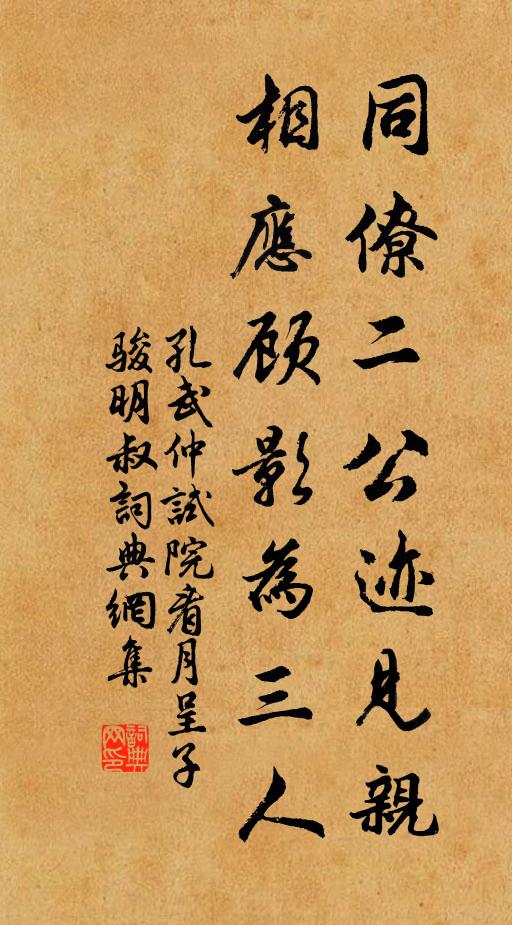 同僚二公迹見親
相應顾影為三人
孔武仲試院看月呈子
骏明叔詞典網集
詞典網印